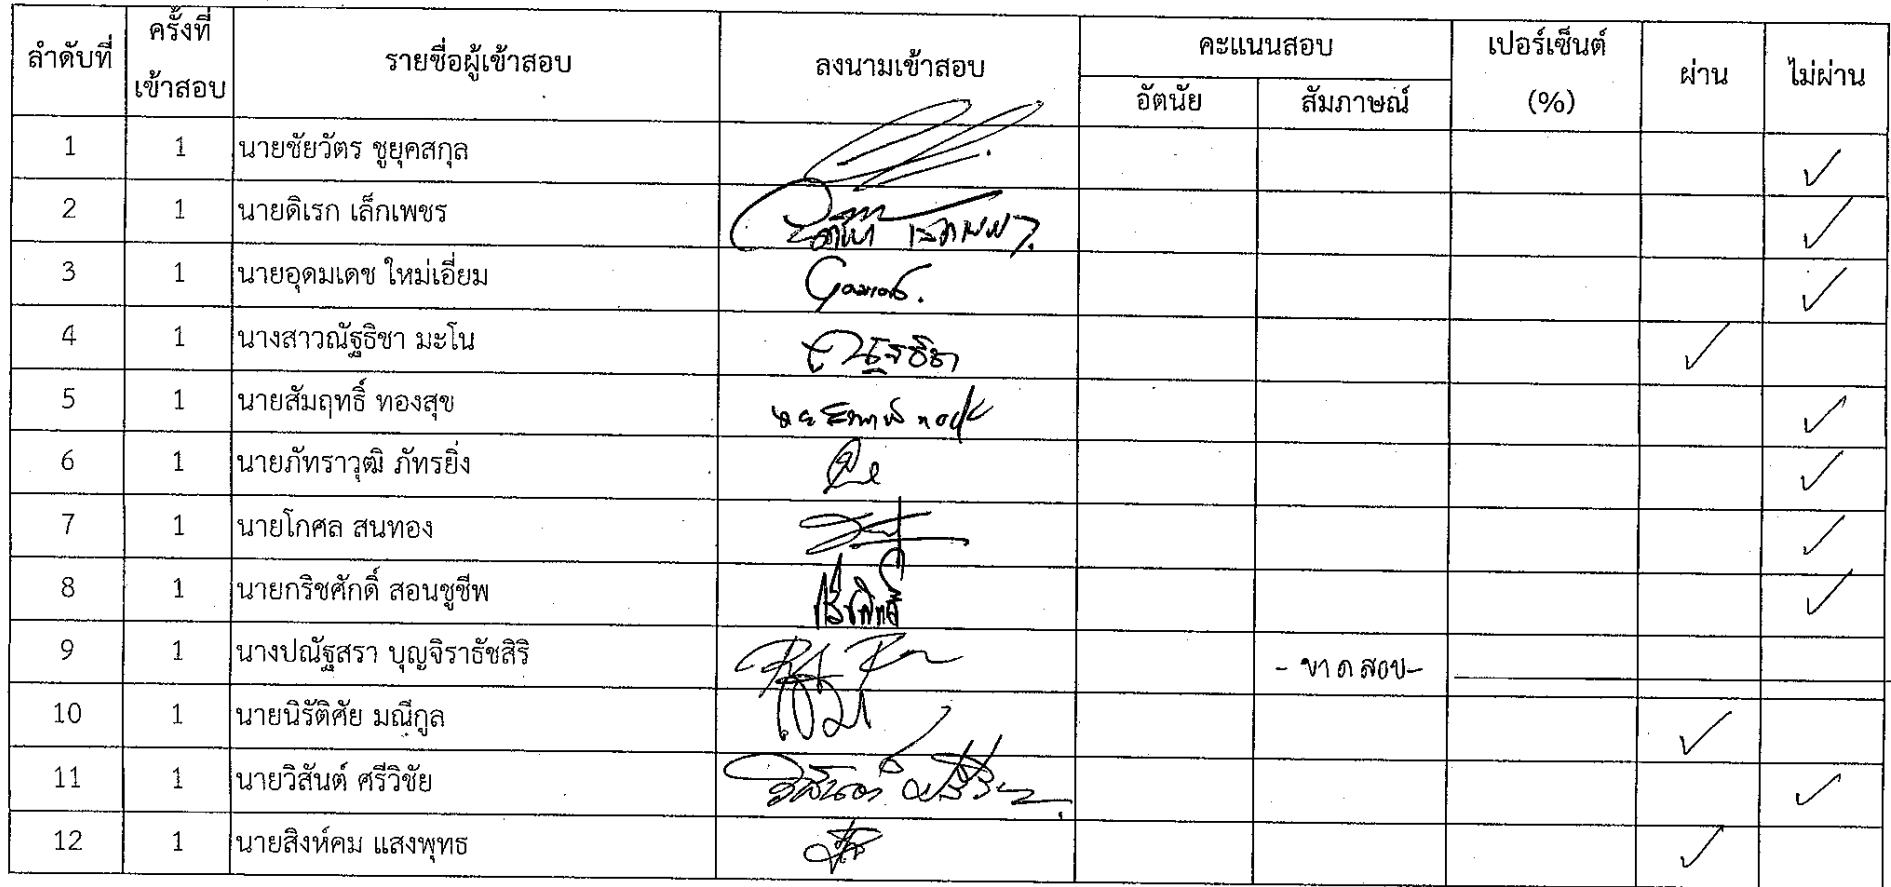 ลำดับที่ ครั้งที่เข้าสอบ รายชื่อผู้เข้าสอบ ลงนามเข้าสอบ คะแนนสอบ เปอร์เซ็นต์ (%) ผ่าน ไม่ผ่าน
อัตนัย สัมภาษณ์
1 1 นายชัยวัตร ชูยุคสกุล ✓
2 1 นายดิเรก เล็กเพชร ✓
3 1 นายอุดมเดช ใหม่เอี่ยม อุดมเดช. ✓
4 1 นางสาวณัฐธิชา มะโน ณัฐธิชา ✓
5 1 นายสัมฤทธิ์ ทองสุข ✓
6 1 นายภัทราวุฒิ ภัทรยิ่ง ✓
7 1 นายโกศล สนทอง ✓
8 1 นายกริชศักดิ์ สอนชูชีพ ✓
9 1 นางปณัฐสรา บุญจิราธัชสิริ - ขาดสอบ -
10 1 นายนิรัติศัย มณีกูล ✓
11 1 นายวิสันต์ ศรีวิชัย ✓
12 1 นายสิงห์คม แสงพุทธ ✓